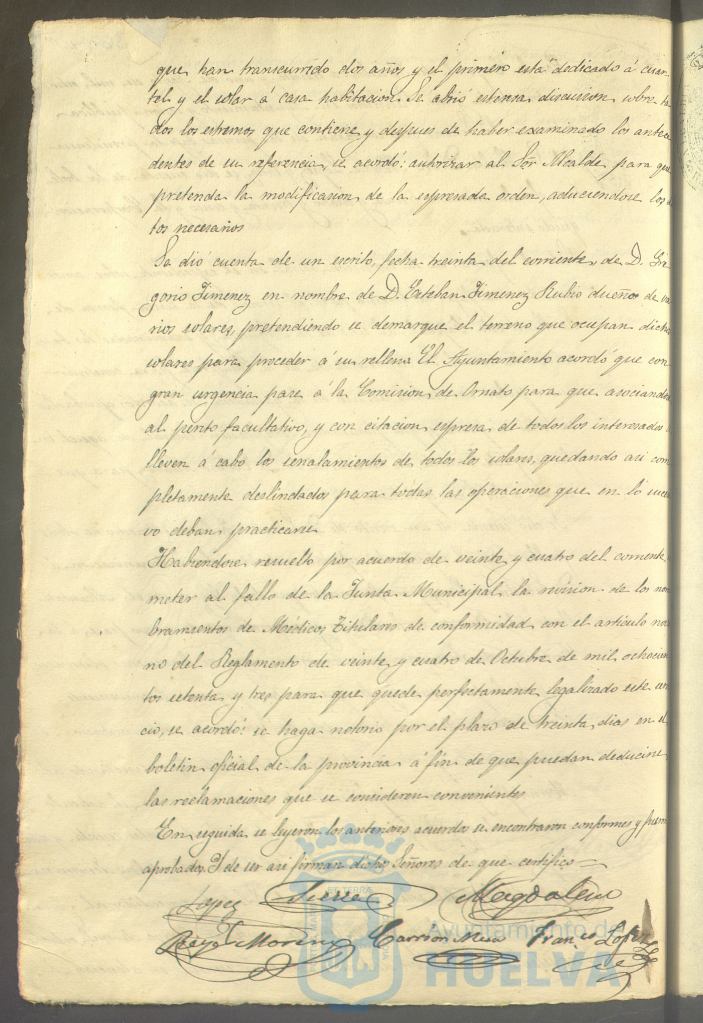 que han transcurrido dos años y el primero está dedicado á cuar-
tel y el solar á casa habitacion. Se abrió estensa discusion sobre to
dos los estremos que contiene y despues de haber examinado los antece
dentes de su referencia, se acordó: autorizar al Sor Alcalde para que
pretenda la modificasion de la espresada orden, aduciendose los
tos necesarios
Se dió cuenta de un escrito, fecha treinta del corriente, de D. Gre
gorio Jimenez en nombre de D. Esteban Jimenez Rubio dueños de va
rios solares, pretendiendo se demarque el terreno que ocupan dichos
solares para proceder á su relleno. El Ayuntamiento acordó que con
gran urgencia pase á la Comision de Ornato para que asociandose
al perito facultativo, y con citacion espresa de todos los interesados
lleven á cabo los señalamientos de todos los solares, quedando asi com
pletamente deslindados para todas las operaciones que en lo succe
vo deban practicarse
Habiendose resuelto por acuerdo de veinte y cuatro del corriente
meter al fallo de la Junta Municipal la revision de los nom
bramientos de Médicos Titulares de conformidad con el artículo no
no del Reglamento de veinte y cuatro de Octubre de mil ochocien
tos setenta y tres para que quede perfectamente legalizado este ser
cio, se acordó: se haga notorio por el plazo de treinta dias en el
boletin oficial de la provincia á fin de que puedan deducirse
las reclamaciones que se consideren convenientes
En seguida se leyeron los anteriores acuerdos se encontraron conformes y fueron
aprobados. Y de ser asi firman dichos Señores de que certifico
Lopez Sierra Magdalena
Moreno Carrion Mesa Fran.co Lopez
Ayuntamiento de
HUELVA